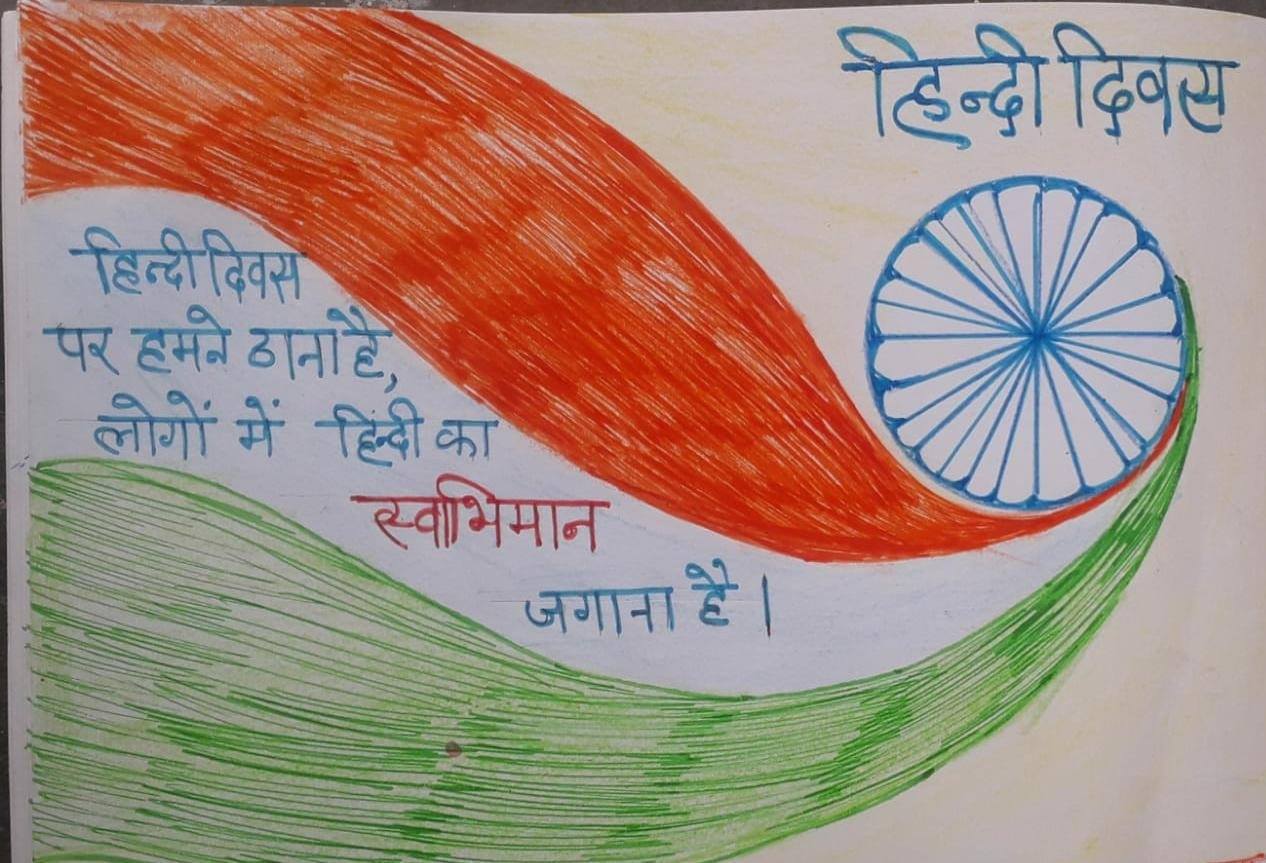 हिन्दी दिवस
हिन्दी दिवस
पर हमने ठाना है,
लोगों में हिन्दी का
स्वाभिमान
जगाना है।